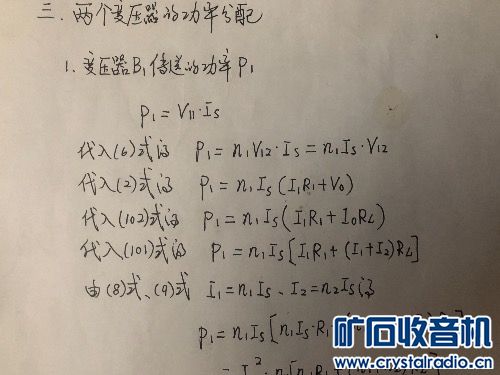 三、两个变压器的功率分配
1. 变压器B₁传送的功率P₁
P₁=V₁₁·Is
代入(6)式得 P₁=n₁V₁₂·Is=n₁Is·V₁₂
代入(2)式得 P₁=n₁Is(I₁R₁+V₀)
代入(102)式得 P₁=n₁Is(I₁R₁+I₀R∠)
代入(101)式得 P₁=n₁Is[I₁R₁+(I₁+I₂)R∠]
由(8)式、(9)式 I₁=n₁Is、I₂=n₂Is得
P₁=n₁Is[n₁Is·R₁
矿石收音机
www.crystalradio.cn